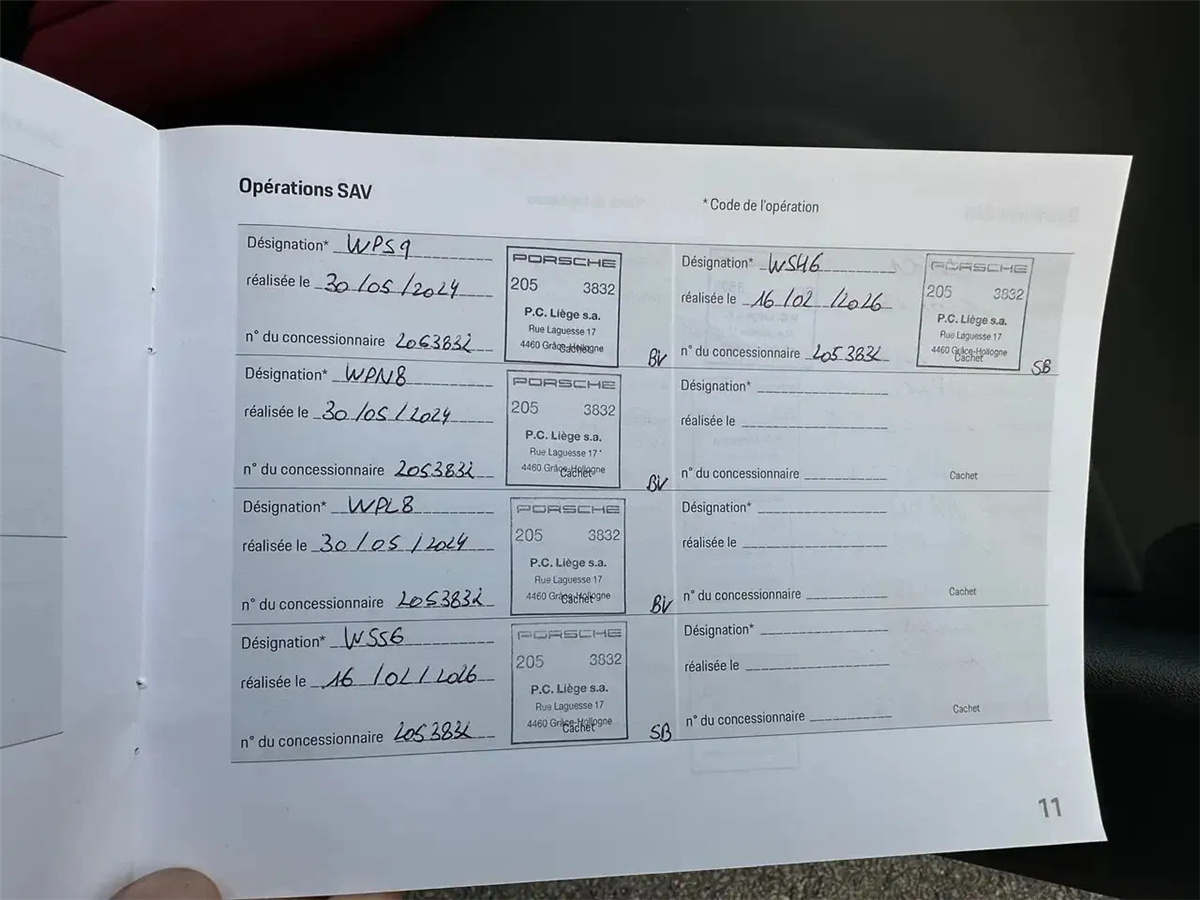 Opérations SAV
*Code de l'opération
Désignation* WPS9
réalisée le 30/05/2024
n° du concessionnaire 2053832
PORSCHE
205 3832
P.C. Liège s.a.
Rue Laguesse 17
4460 Grâce-Hollogne
Cachet
BV
Désignation* WPN8
réalisée le 30/05/2024
n° du concessionnaire 2053832
PORSCHE
205 3832
P.C. Liège s.a.
Rue Laguesse 17
4460 Grâce-Hollogne
Cachet
BV
Désignation* WPL8
réalisée le 30/05/2024
n° du concessionnaire 2053832
PORSCHE
205 3832
P.C. Liège s.a.
Rue Laguesse 17
4460 Grâce-Hollogne
Cachet
BV
Désignation* WSS6
réalisée le 16/02/2026
n° du concessionnaire 2053832
PORSCHE
205 3832
P.C. Liège s.a.
Rue Laguesse 17
4460 Grâce-Hollogne
Cachet
SB
Désignation* WSH6
réalisée le 16/02/2026
n° du concessionnaire 2053832
PORSCHE
205 3832
P.C. Liège s.a.
Rue Laguesse 17
4460 Grâce-Hollogne
Cachet
SB
Désignation*
réalisée le
n° du concessionnaire
Cachet
Désignation*
réalisée le
n° du concessionnaire
Cachet
Désignation*
réalisée le
n° du concessionnaire
Cachet
11